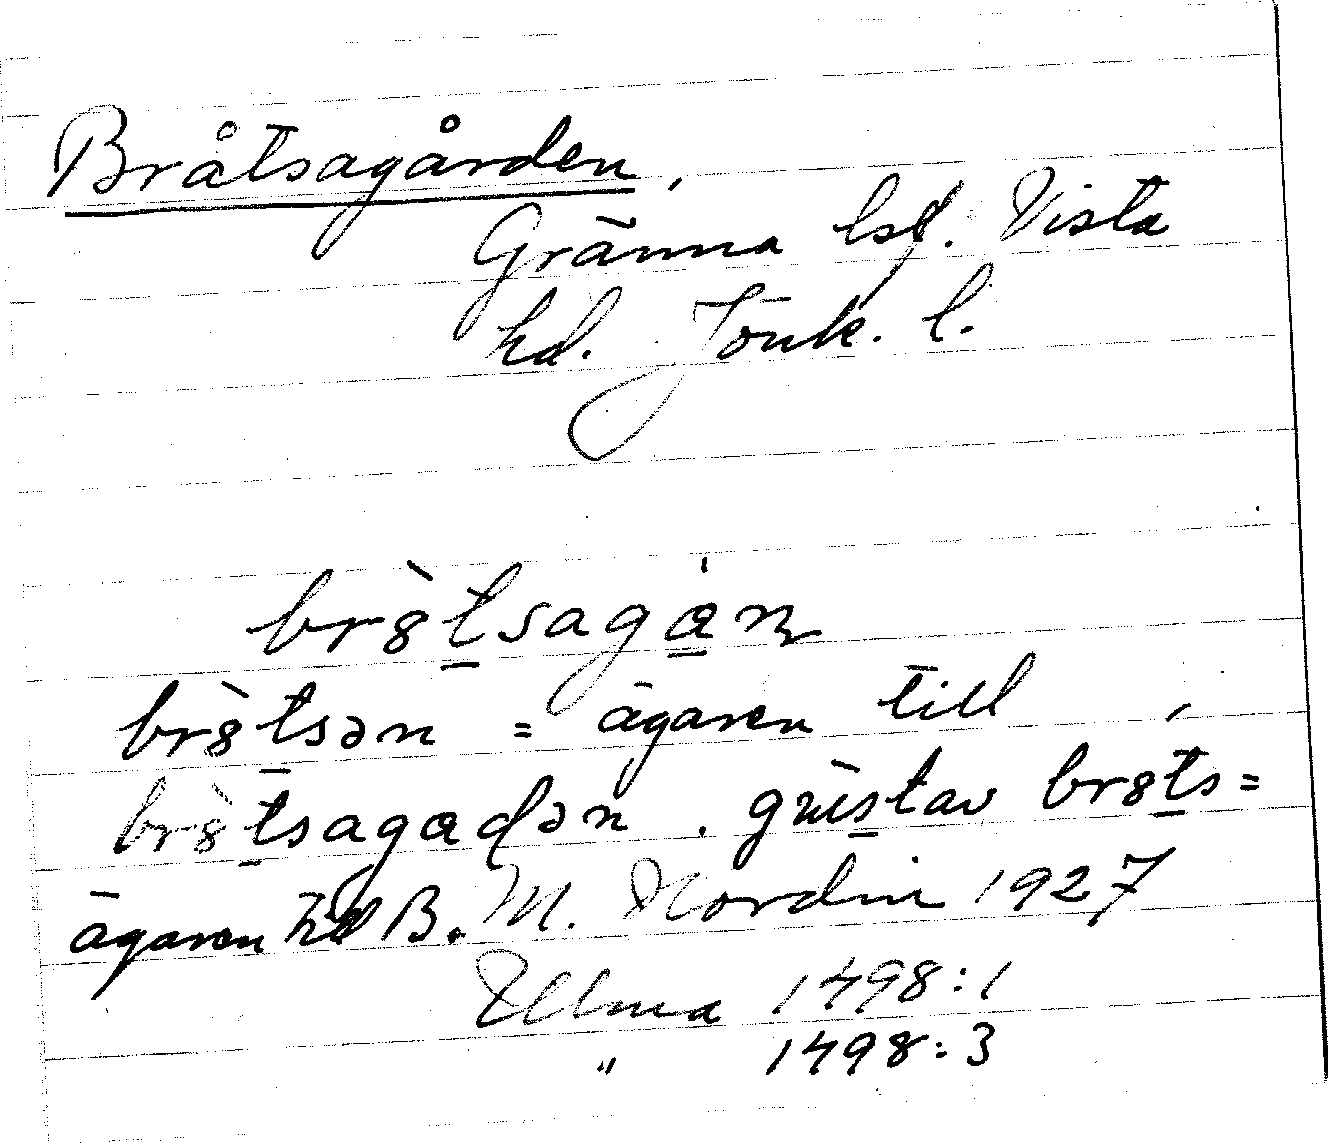 Bråtsagården,
Gränna lsf. Vista
hd. Jönk. l.
br8̀t̲sagạ̲n
br8̀t̲sən = ägaren till,
br8̀t̲sagadən. gùs̲tav br8t̲s=
ägaren till B. M. Nordin 1927
Ulma 1498:1
" 1498:3